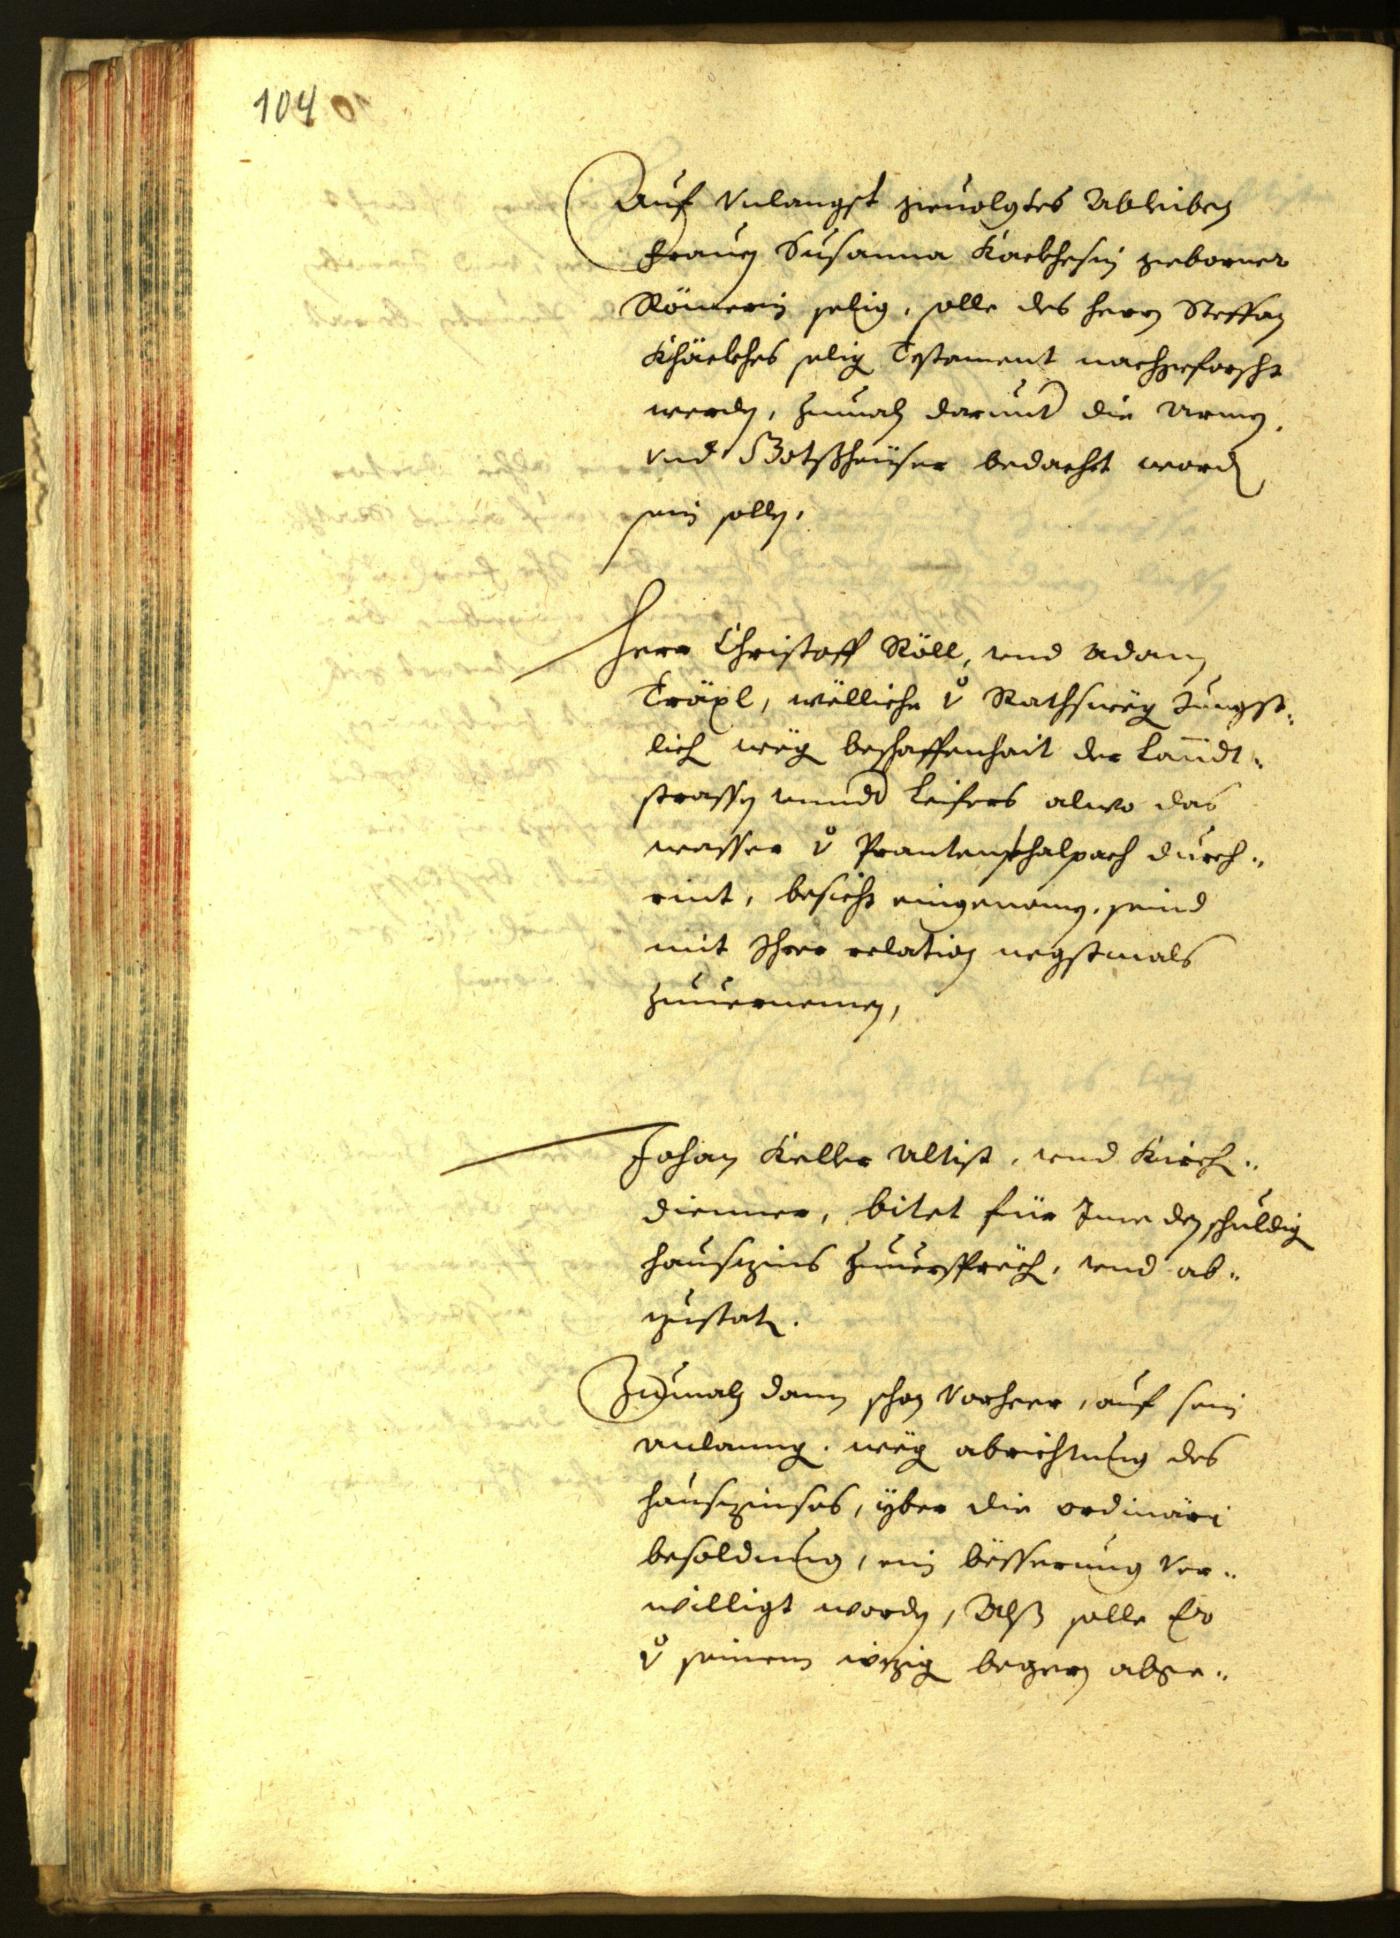 104
Auf Vnlangst zieuolgtes Ableiben
Frauen Susanna Kaelchesin geborner
Römerin selig, solle des herrn Steffan
Khäelches selig Testament nachgeforscht
werden, zumaln darunter die Armen,
vnd Gottßheüser bedacht worden
sein sollen.
Herr Christoff Röll, vnd Adam
Träxl, wölliche von Rathswegen Jungst-
lich wegen beschaffenhait der Lanndt-
strassen vnnder Leifers alwo das
wasser von Prantenthalpach durch-
rint, besicht eingenomen, seind
mit Ihrer relation negstmals
zuuernemen,
Johan Keller Altist, vnd Kirch-
diener, bitet für Ime den schuldigen
hauszins zuuersprechen, vnd ab-
zustaten.
Zumaln dann schon Vorheer, auf sein
anlanngen wegen abrichtung des
hauszinses, yber die ordinäri
besoldung, ein besserung Ver-
willigt worden, Alß solle Er
von seinem iezigen begern abge-